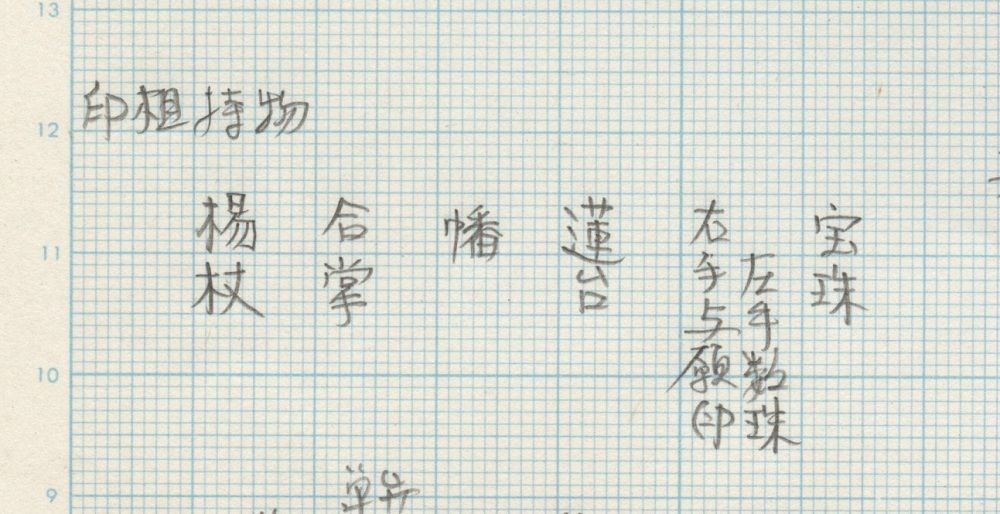 13
12
11
10
9
印相持物
宝珠
左手数珠
右手与願印
蓮台
幡
合掌
楊杖